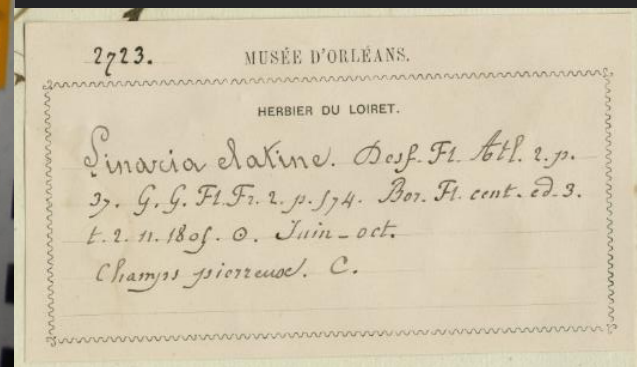 2723.
MUSÉE D'ORLÉANS.
HERBIER DU LOIRET.
Linaria elatine. Desf. Fl. Atl. 2. p.
37. G. G. Fl. Fr. 2. p. 574. Bor. Fl. cent. ed. 3.
t. 2. n. 1805. ⊙. Juin - oct.
Champs pierreux. C.